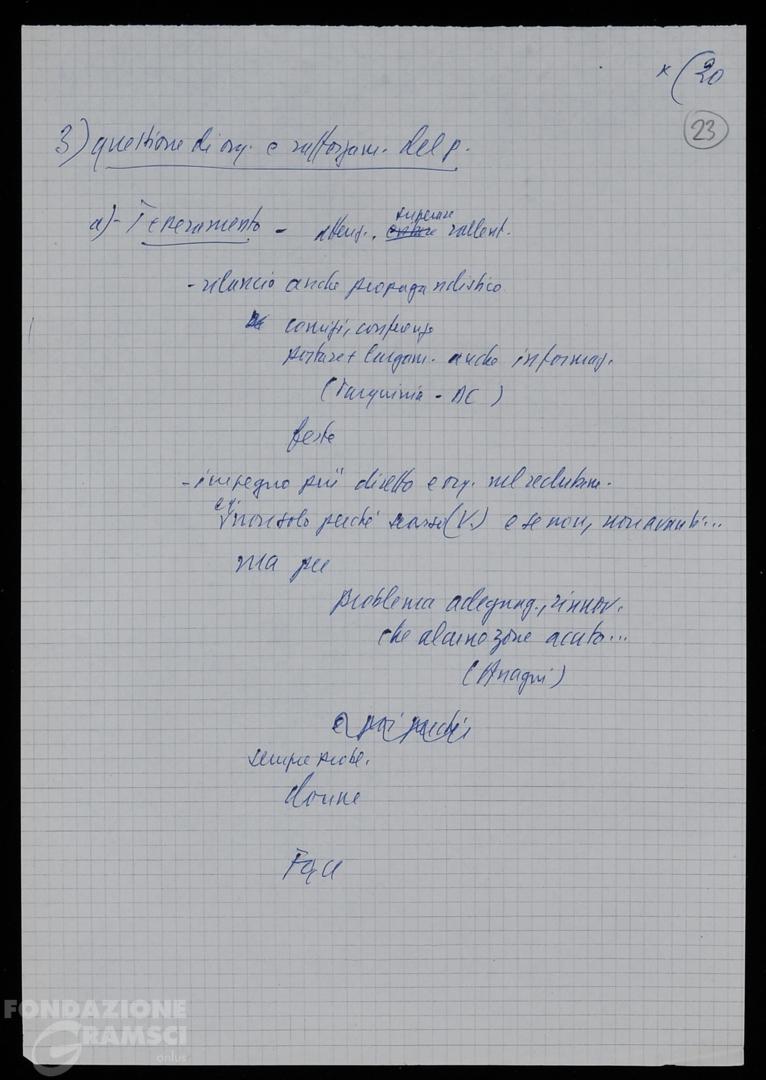 * (20
23
3) questione di org. e rafforzam. del p.
a) - Tesseramento - attenz. superare rallent.
- rilancio anche propagandistico
comizi, conferenze
portare + largam. anche informaz.
(Tarquinia - AC)
feste
- impegno più diretto e org. nel reclutam.
non solo perché scarso (V.) e se non, non avanti...
ma per
problema adeguag., rinnov.
che alcune zone acuto...
(Anagni)
e poi perché
sempre probl.
donne
Fgci
FONDAZIONE
GRAMSCI
onlus